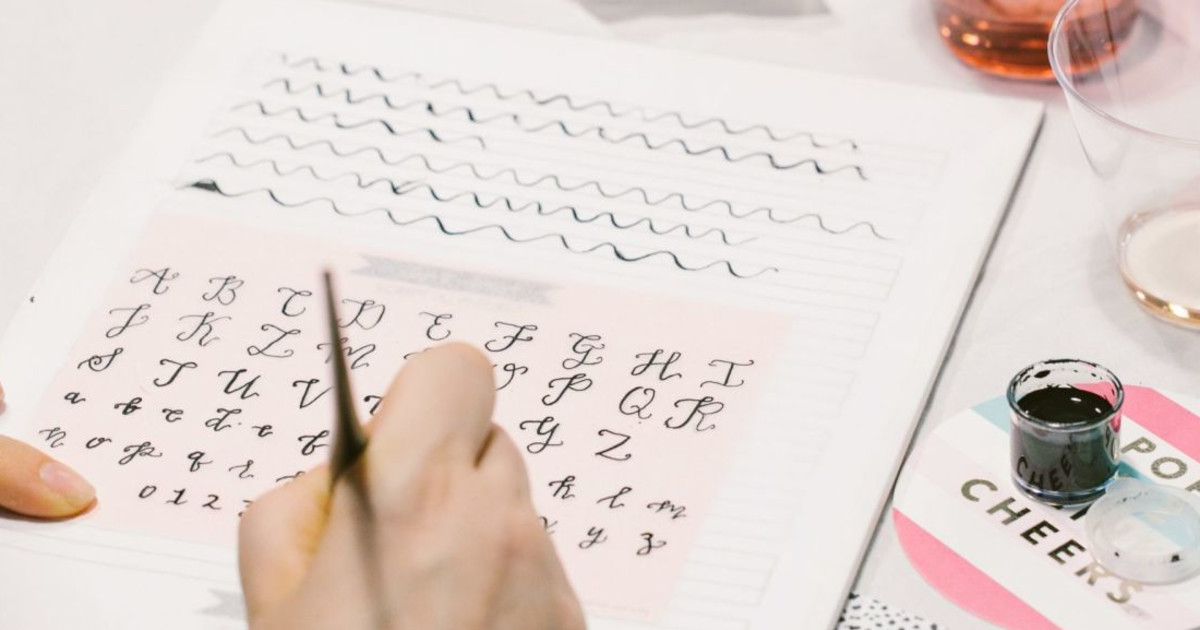 A B C D E F G H I
J K L M O P Q R
S T U V Y Z
a b c d e f k l m
n o p q r y z
0 1 2
CHEERS